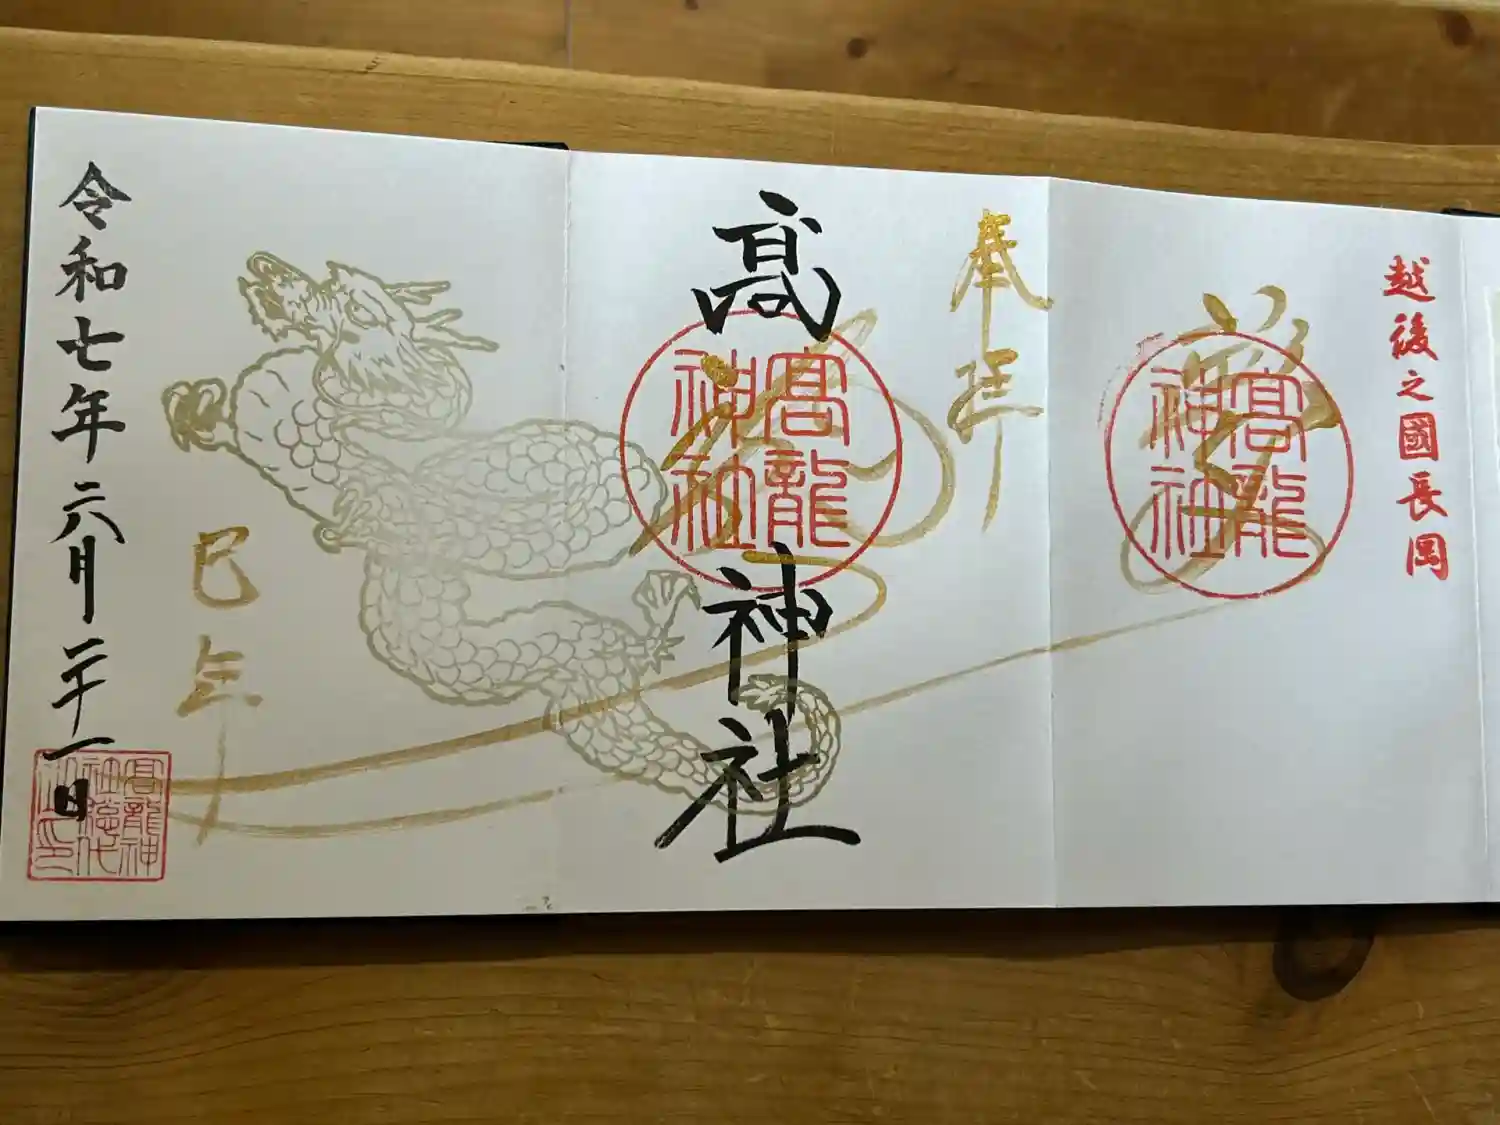 越後之國長岡
髙龍
神社
奉拝
髙神社
髙龍
神社
巳年
令和七年六月二十一日
髙龍神
社総代
之印